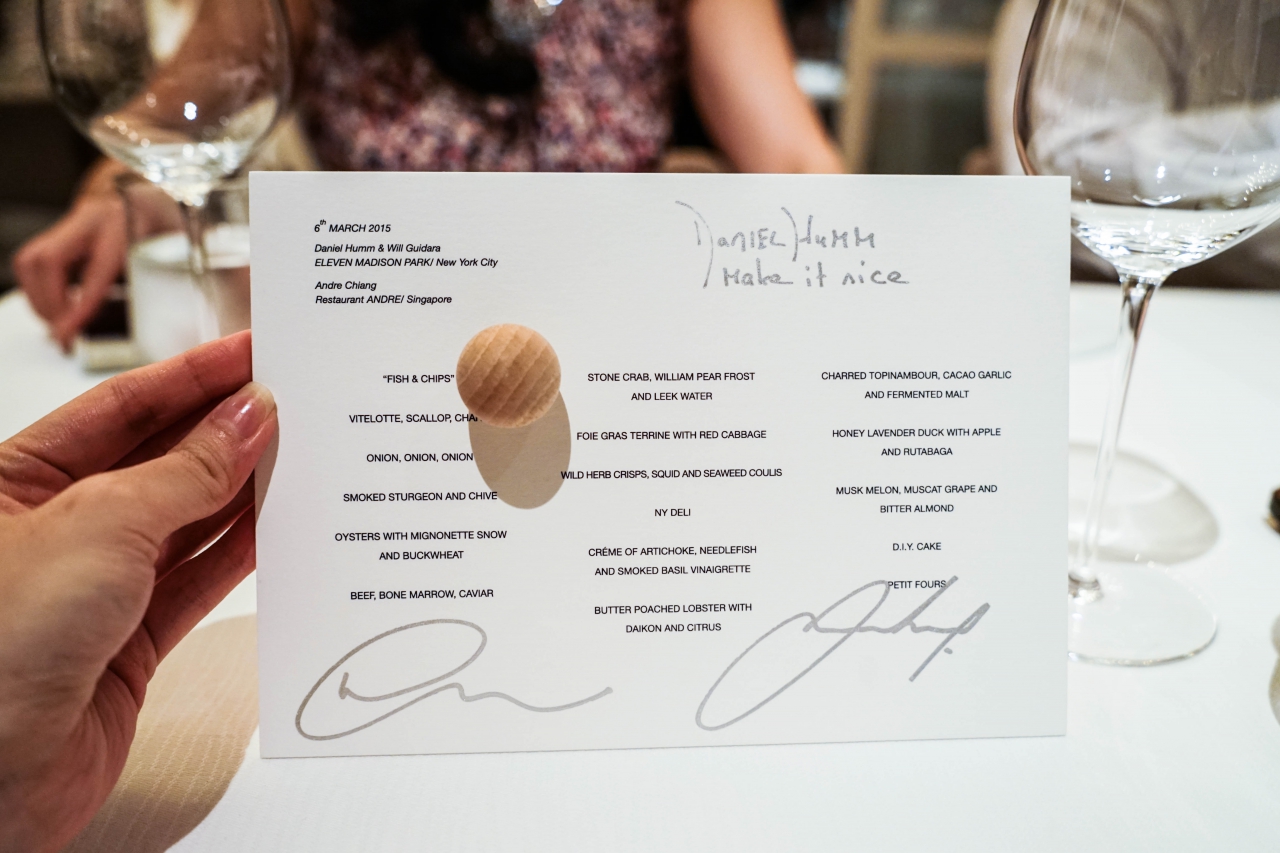 6th MARCH 2015
Daniel Humm & Will Guidara
ELEVEN MADISON PARK/ New York City
Andre Chiang
Restaurant ANDRE/ Singapore
DANIEL HUMM
Make it nice
"FISH & CHIPS"
VITELOTTE, SCALLOP,
ONION, ONION, ONION
SMOKED STURGEON AND CHIVE
OYSTERS WITH MIGNONETTE SNOW
AND BUCKWHEAT
BEEF, BONE MARROW, CAVIAR
STONE CRAB, WILLIAM PEAR FROST
AND LEEK WATER
FOIE GRAS TERRINE WITH RED CABBAGE
WILD HERB CRISPS, SQUID AND SEAWEED COULIS
NY DELI
CRÉME OF ARTICHOKE, NEEDLEFISH
AND SMOKED BASIL VINAIGRETTE
BUTTER POACHED LOBSTER WITH
DAIKON AND CITRUS
CHARRED TOPINAMBOUR, CACAO GARLIC
AND FERMENTED MALT
HONEY LAVENDER DUCK WITH APPLE
AND RUTABAGA
MUSK MELON, MUSCAT GRAPE AND
BITTER ALMOND
D.I.Y. CAKE
PETIT FOURS